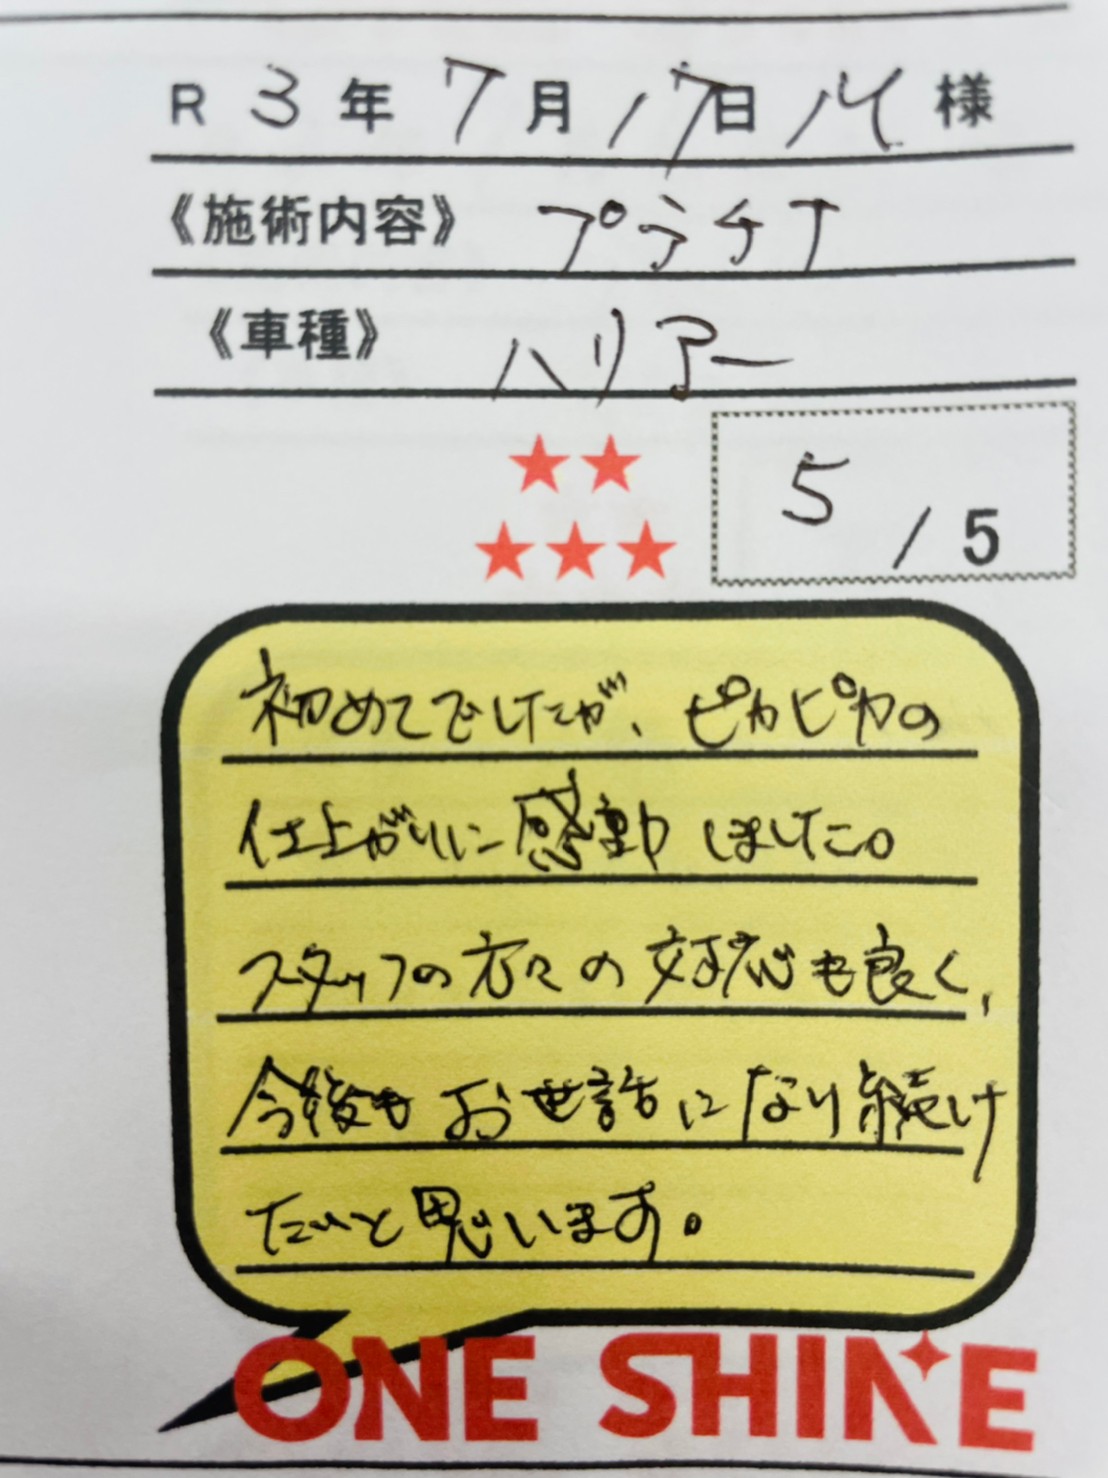 R 3年 7月 17日 様
《施術内容》 プラチナ
《車種》 ハリアー
5 / 5
初めてでしたが、ピカピカの
仕上がりに感動しました。
スタッフの方々の対応も良く、
今後もお世話になり続け
たいと思います。
ONE SHINE